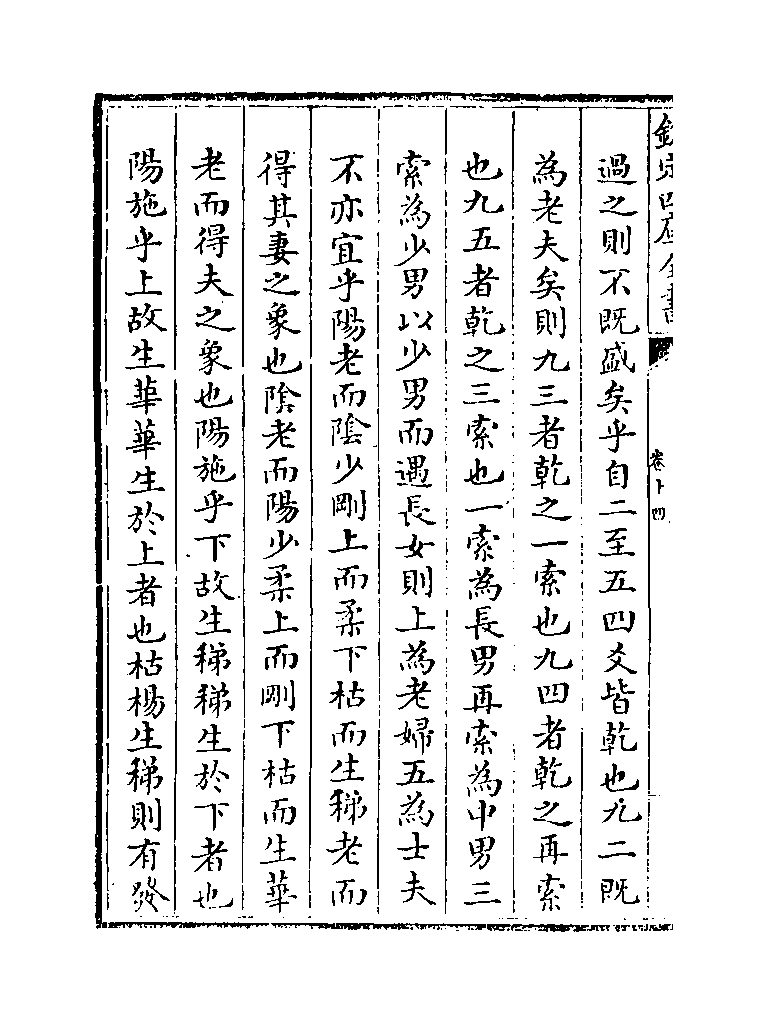 欽定四庫全書
卷十四
過之則不既盛矣乎自二至五四爻皆乾也九二既
為老夫矣則九三者乾之一索也九四者乾之再索
也九五者乾之三索也一索為長男再索為中男三
索為少男以少男而遇長女則上為老婦五為士夫
不亦宜乎陽老而陰少剛上而柔下枯而生稊老而
得其妻之象也陰老而陽少柔上而剛下枯而生華
老而得夫之象也陽施乎下故生稊稊生於下者也
陽施乎上故生華華生於上者也枯楊生稊則有發